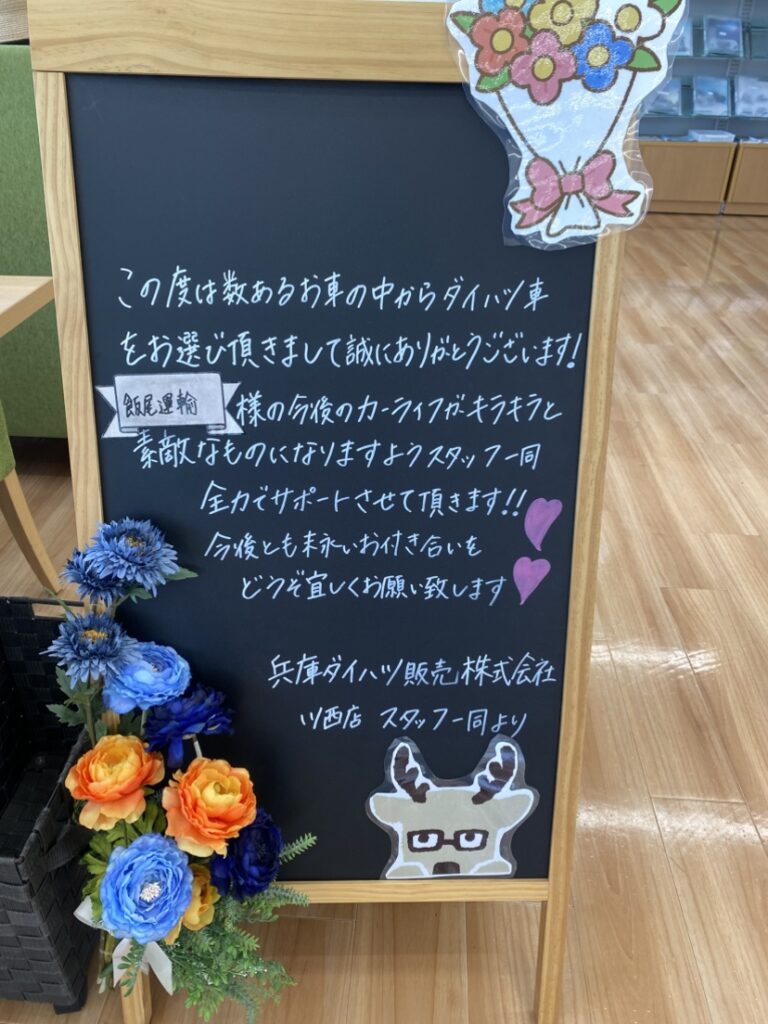 この度は数あるお車の中からダイハツ車
をお選び頂きまして誠にありがとうございます!
飯尾運輸 様の今後のカーライフがキラキラと
素敵なものになりますようスタッフ一同
全力でサポートさせて頂きます!!
今後とも末永いお付き合いを
どうぞ宜しくお願い致します
兵庫ダイハツ販売株式会社
川西店 スタッフ一同より